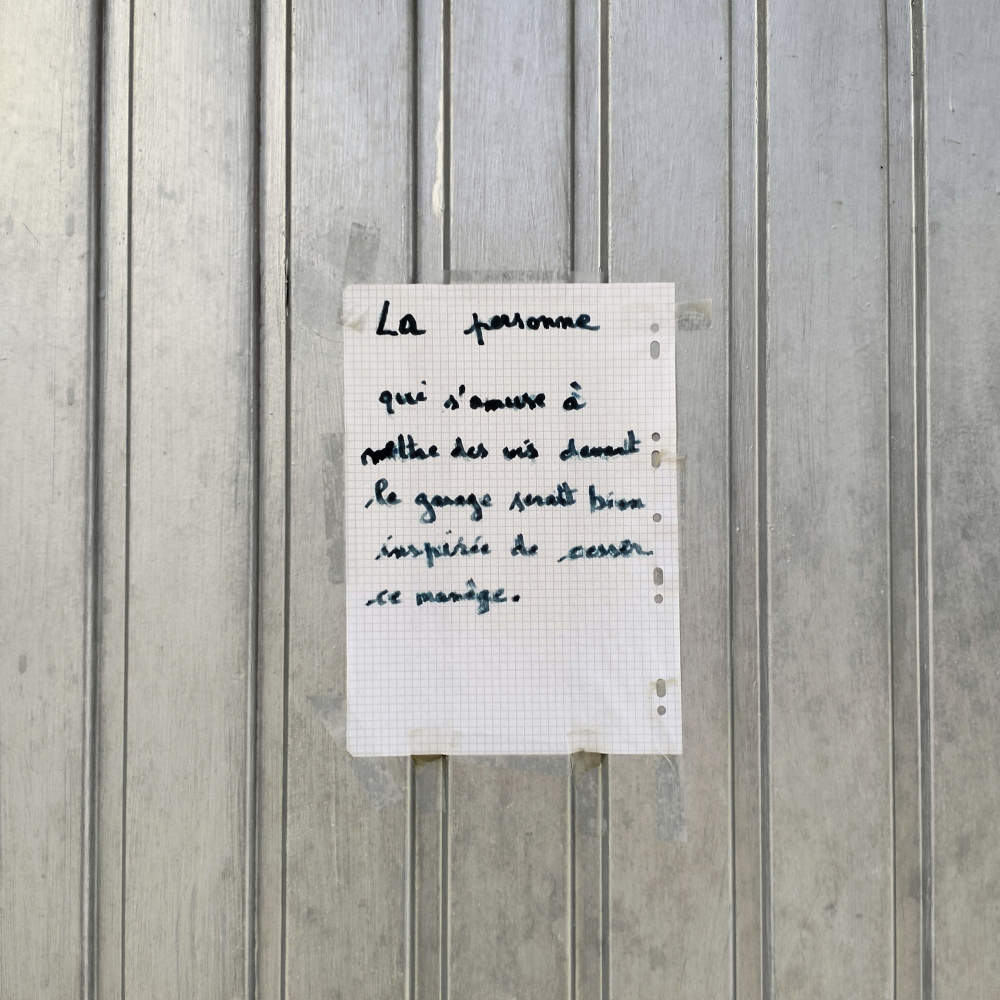 La personne
qui s'amuse à
mettre des vis devant
le garage serait bien
inspirée de cesser
ce manège.